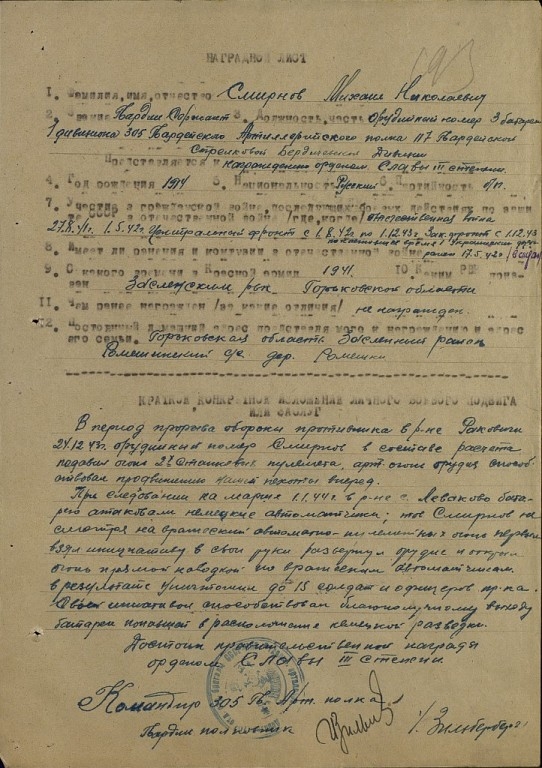 193
НАГРАДНОЙ ЛИСТ
1. Фамилия, имя, отчество Смирнов Михаил Николаевич
2. Звание Гвардии Сержант 3. Должность, часть Орудийный номер 3 батареи
1 дивизиона 305 Гвардейского Артиллерийского полка 117 Гвардейской
Стрелковой Бердичевской Дивизии
Представляется к награждению орденом Славы III степени
4. Год рождения 1914 5. Национальность Русский 6. Партийность б/п.
7. Участие в гражданской войне, последующих боевых действиях по защите
СССР и отечественной войне /где, когда/ отечественная война
1.5.42г. Центральный фронт с 1.8.42 по 1.12.43г. Зак. фронт с 1.12.43
по настоящее время 1 Украинский фронт
8. Имеет ли ранения и контузии в отечественной войне ранен 17.5.42г.
9. С какого времени в Красной армии 1941. 10 Каким РВК призван
район Горьковской области
11. Чем ранее награжден /за какие отличия/ не награжден.
12. Постоянный домашний адрес представляемого к награждению и адрес
его семьи. Горьковская область район
с/с дер. Ромешки
КРАТКОЕ КОНКРЕТНОЕ ИЗЛОЖЕНИЕ ЛИЧНОГО БОЕВОГО ПОДВИГА
ИЛИ ЗАСЛУГ
В период прорыва обороны противника в р-не Раковичи
24.12.43г. орудийный номер Смирнов в составе расчета
подавил огонь 2х станковых пулемета, арт. огонь орудия способ-
ствовал продвижению нашей пехоты вперед.
При следовании на марше 1.1.44г. в р-не с. Леваково бата-
рею атаковали немецкие автоматчики; тов Смирнов не
смотря на вражеский автоматно-пулеметный огонь первым
взял инициативу в свои руки развернул орудие и открыл
огонь прямой наводкой по вражеским автоматчикам.
в результате уничтожил до 15 солдат и офицеров пр-ка.
Своей инициативой способствовал благополучному выходу
батареи попавшей в расположение немецкой разведки.
Достоин правительственной награды
орденом СЛАВЫ III степени
Командир 305 Гв. Арт. полка
Гвардии полковник /Зильберберг/